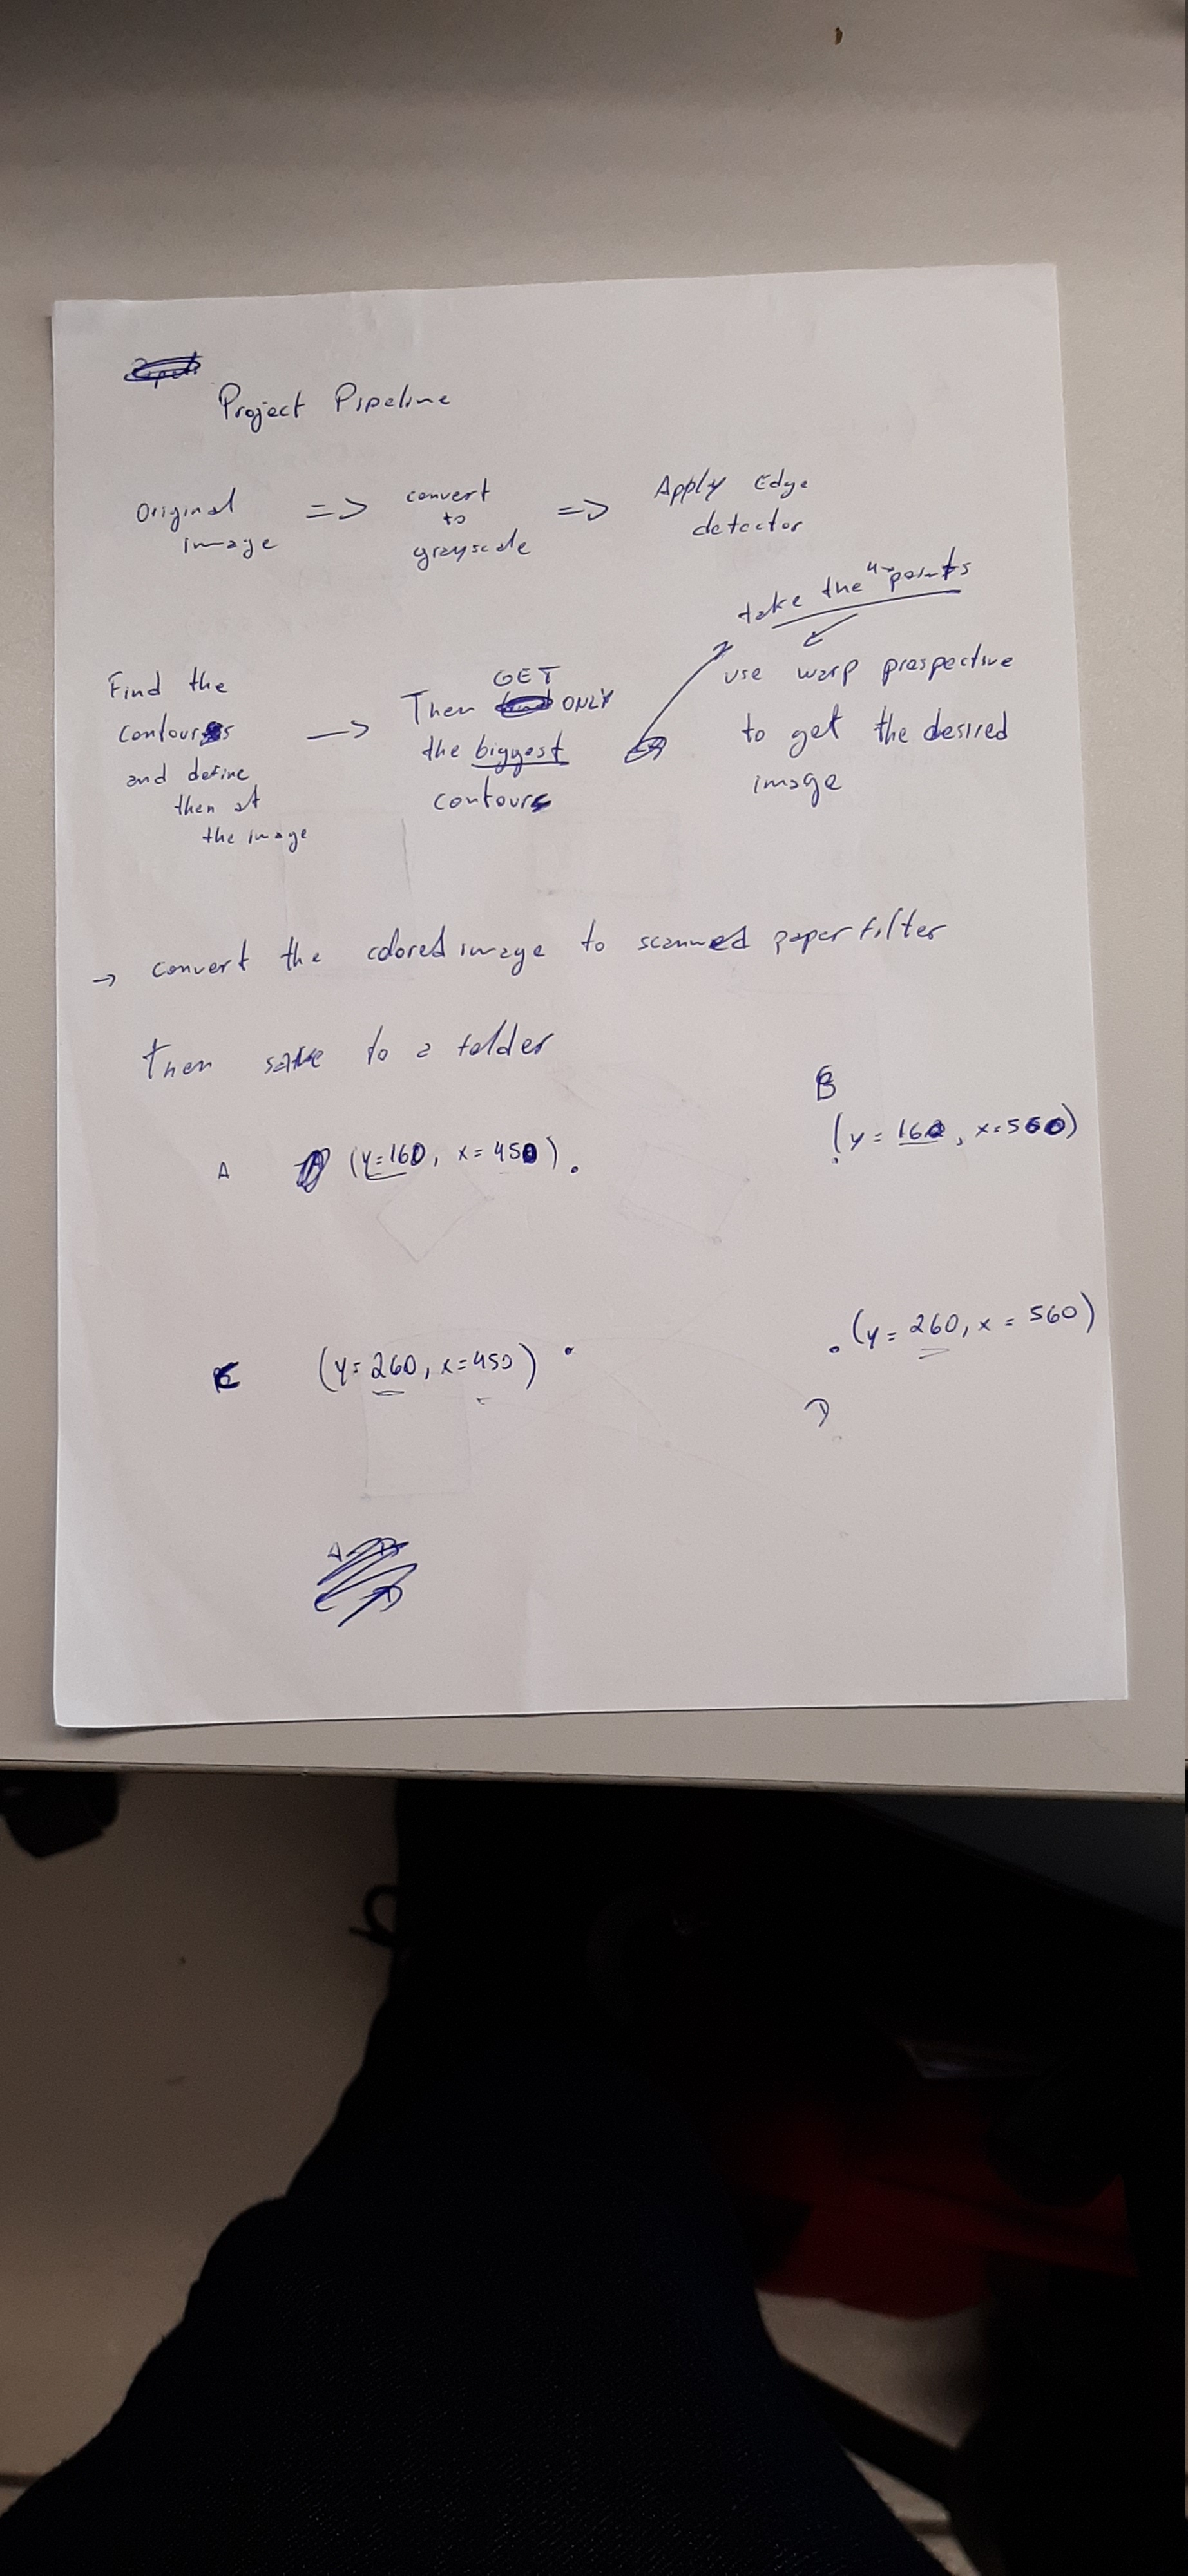 Project Pipeline
Original image => convert to grayscale => Apply Edge detector
take the 4 points
Find the contours and define then at the image -> Then GET ONLY the biggest contours
use warp prospective to get the desired image
-> convert the colored image to scanned paper filter
then save to a folder
B
A (y=160, x=450)
(y=160, x=560)
C (y=260, x=450)
(y=260, x=560)
D